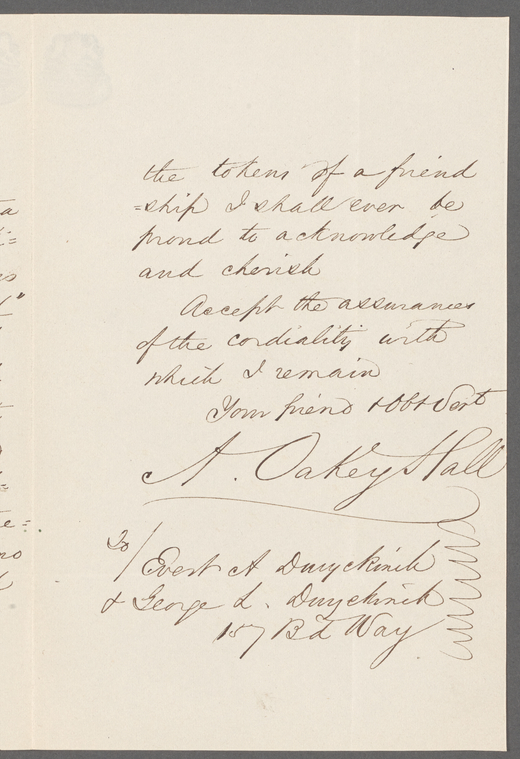 the tokens of a friend
=ship I shall ever be
proud to acknowledge
and cherish
Accept the assurances
of the cordiality with
which I remain
Your friend & Obt Servt
A. Oakey Hall
To/
Evert A Duyckinck
& George L. Duyckinck
157 Bd Way